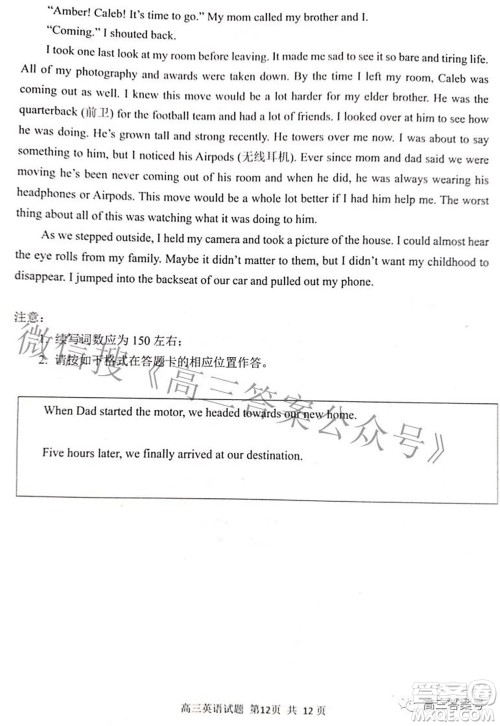 “Amber! Caleb! It’s time to go.” My mom called my brother and I.
“Coming.” I shouted back.
I took one last look at my room before leaving. It made me sad to see it so bare and tiring life.
All of my photography and awards were taken down. By the time I left my room, Caleb was
coming out as well. I knew this move would be a lot harder for my elder brother. He was the
quarterback (前卫) for the football team and had a lot of friends. I looked over at him to see how
he was doing. He’s grown tall and strong recently. He towers over me now. I was about to say
something to him, but I noticed his Airpods (无线耳机). Ever since mom and dad said we were
moving he’s been never coming out of his room and when he did, he was always wearing his
headphones or Airpods. This move would be a whole lot better if I had him help me. The worst
thing about all of this was watching what it was doing to him.
As we stepped outside, I held my camera and took a picture of the house. I could almost hear
the eye rolls from my family. Maybe it didn’t matter to them, but I didn’t want my childhood to
disappear. I jumped into the backseat of our car and pulled out my phone.
注意：
1. 续写词数应为 150 左右；
2. 请按如下格式在答题卡的相应位置作答。
When Dad started the motor, we headed towards our new home.
Five hours later, we finally arrived at our destination.
微信搜《高三答案公众号》
高三英语试题 第12页 共 12 页
高三答案号